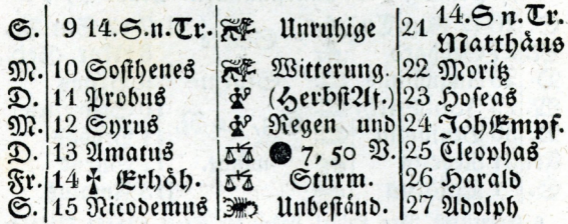 S. 9 14.S.n.Tr. Unruhige 21 14.S n.Tr. Matthäus
M. 10 Sosthenes Witterung. 22 Moritz
D. 11 Probus (HerbstAf.) 23 Hoseas
M. 12 Syrus Regen und 24 JohEmpf.
D. 13 Amatus ● 7, 50 V. 25 Cleophas
Fr. 14 † Erhöh. Sturm. 26 Harald
S. 15 Nicodemus Unbeständ. 27 Adolph